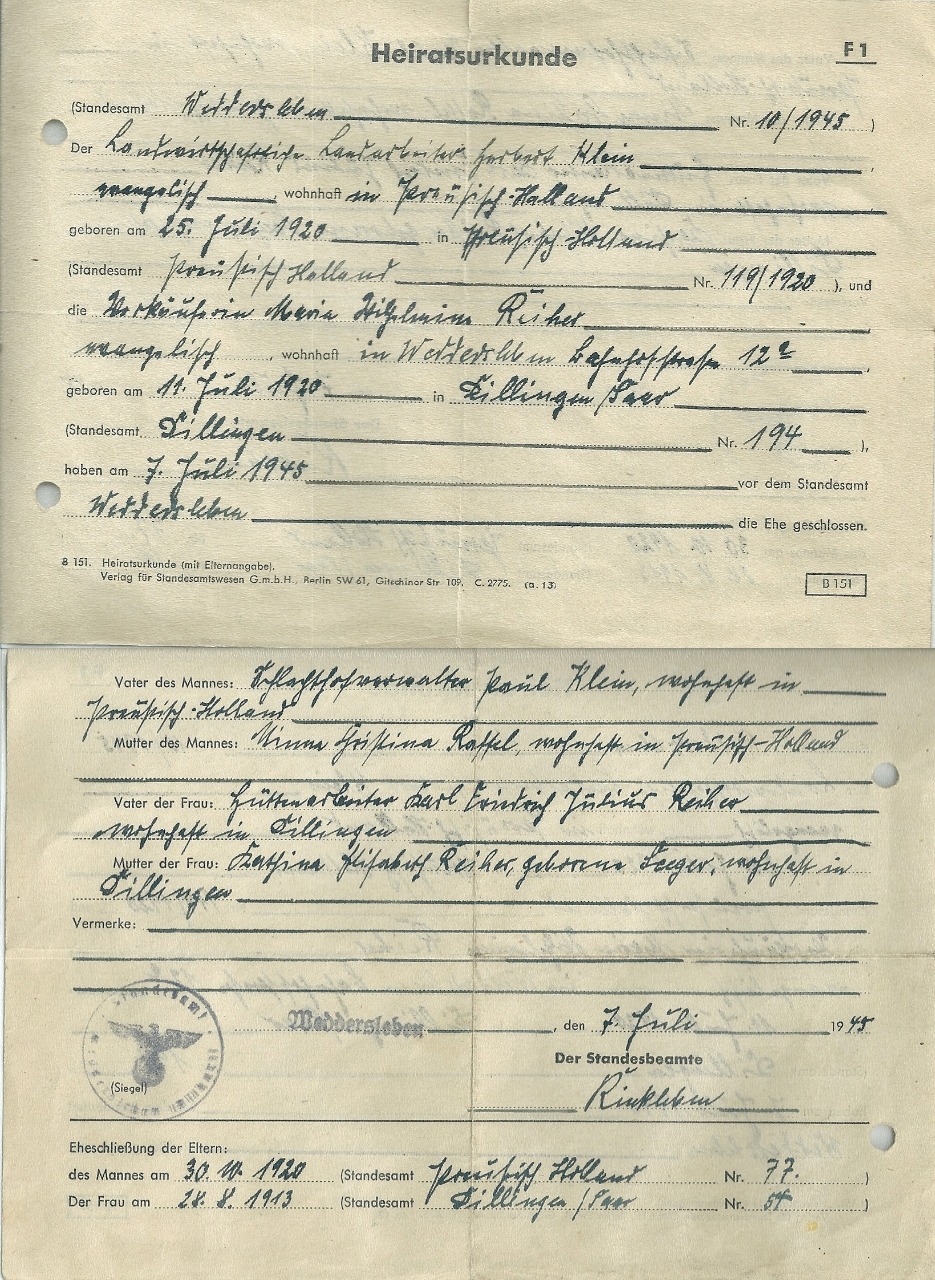 Heiratsurkunde
F 1
(Standesamt Weddersleben Nr. 10/1945 )
Der Landwirtschaftliche Landarbeiter Herbert Klein,
evangelisch, wohnhaft in Preußisch-Holland
geboren am 25. Juli 1920 in Preußisch Holland
(Standesamt Preußisch Holland Nr. 119/1920 ), und
die Verkäuferin Maria Wilhelmine Reiher
evangelisch, wohnhaft in Weddersleben Bahnhofstraße 12a,
geboren am 11. Juli 1920 in Dillingen/Saar
(Standesamt Dillingen Nr. 194 ),
haben am 7. Juli 1945 vor dem Standesamt
Weddersleben die Ehe geschlossen.
B 151. Heiratsurkunde (mit Elternangabe).
Verlag für Standesamtswesen G.m.b.H., Berlin SW 61, Gitschiner Str. 109. C. 2775. (a. 13)
B 151
Vater des Mannes: Schlachthofverwalter Paul Klein, wohnhaft in
Preußisch-Holland
Mutter des Mannes: Minna Christina Raffel, wohnhaft in Preußisch-Holland
Vater der Frau: Hüttenarbeiter Karl Friedrich Julius Reiher
wohnhaft in Dillingen
Mutter der Frau: Kathina Elisabeth Reiher, geborene Seeger, wohnhaft in
Dillingen
Vermerke:
Standesamt
Weddersleben, den 7. Juli 1945
Der Standesbeamte
(Siegel)
Rinkleben
Eheschließung der Eltern:
des Mannes am 30.10.1920 (Standesamt Preußisch Holland Nr. 77. )
Der Frau am 28.8.1913 (Standesamt Dillingen/Saar Nr. 54 )